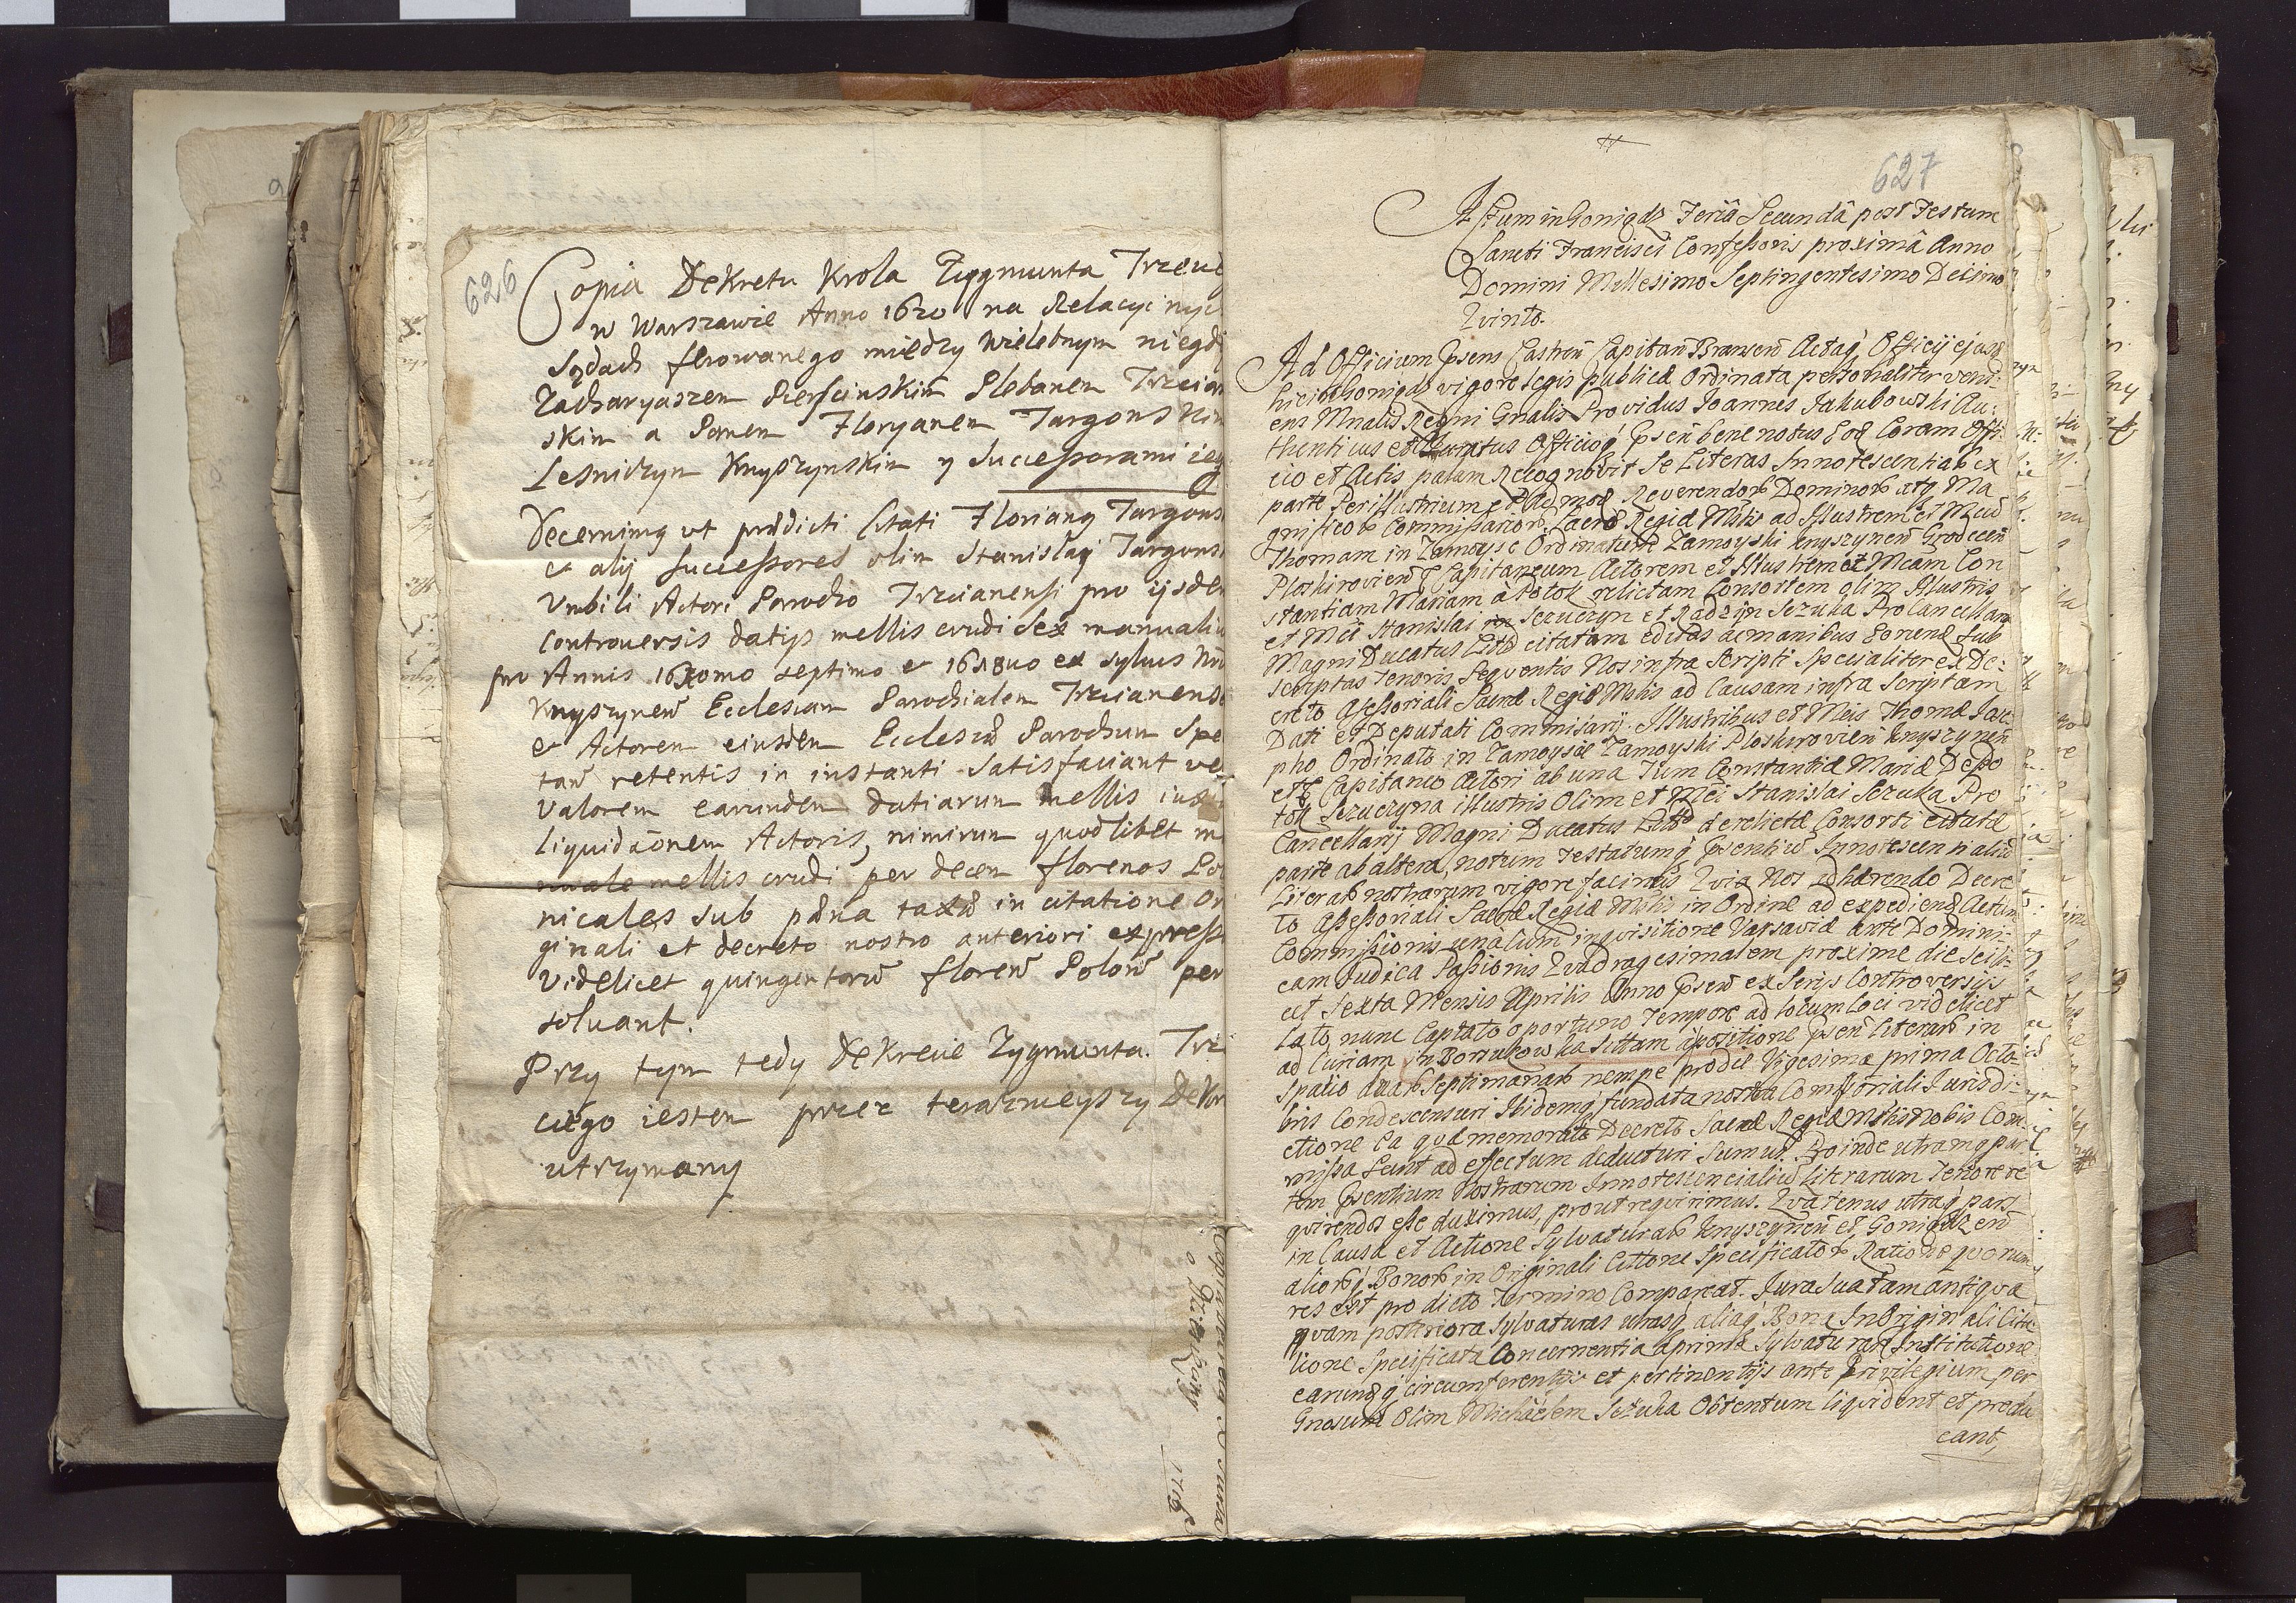 626
Copia Dekretu Krola Zygmunta Trzeci
w Warszawie Anno 1620 na Relacyi nyc
Sądach ferowanego między Wielebnym niegdy
Zacharyaszem Pierscinskim Plebanem Trzcian
skim a Panem Floryanem Targonskim
Lesniczym Knyszynskim y Successorami ieg
Decernimg ut prædicti Citati Floriang Targons
et alij Successores olim Stanislaj Targons
Vnbili Actori Parocho Trzcianensi pro ijsdem
controversis datijs mellis crudi sex manualiu
pro Annis 16 septimo et 1618uo ex sylvis
Knyszynen Ecclesiam Parochialem Trzcianense
et Actorem eiusdem Ecclesiæ Parochum Spe
tan retentis in instanti satisfaciant ve
Valorem earundem datiarum mellis iux
liquidaōnem Actoris, nimirum quodlibet m
nuale mellis crudi per decem florenos Pol
nicales sub pæna taxæ in citatione Or
ginali et decreto nostro anteriori express
Videlicet quingentorū floren Polon per
solvant.
Przy tym tedy Dekrecie Zygmunta Trze
ciego iestem przez teraznieyszy Dekr
utrzymany
1716
627
Actum in Goniądz Feriâ Secundâ post Festum
Sancti Francisci Confessoris proximâ Anno
Domini Millesimo Septingentesimo Decimo
Qvinto.
Ad Officium Psens Castren Capitan Bransen Actaq Officij ejusd
hic in Goniądz vigore Legis publicæ Ordinata personaliter veni:
ens Mnalis Regni Gnalis Providus Joannes Jakubowski Au:
thenticus et Juratus Officioq Psen bene notus Eod Coram Offi:
cio et Actis palam Recognovit Se Literas Innotescentiales ex
parte Perillustrium et Admod Reverendor Dominor atq Ma
gnificor Commissarior Sacræ Regiæ Mtis ad Illustrem et
Thomam in Zamoyscie Ordinatum Zamoyski Knyszynen Grodecen
Ploskirovien Capitaneum Actorem et Illustrem et Mcam Con
stantiam Mariam à Potok relictam Consortem olim Illustris
et Mci Stanislai Szczuczyn et Radzijn Sczuka ProCancellarij
Magni Ducatus Litt citatam editas ac manibus eorund sub
scriptas Tenoris Seqventis Nos infra Scripti Specialiter ex De:
creto Assessoriali Sacræ Regiæ Mtis ad Causam infra Scriptam
Dati et Deputati Commissarij. Illustribus et Mcis Thomæ Jose
pho Ordinato in Zamoyscie Zamoyski Ploskirovien Knyszynen
Capitaneo Actori ab una Tum Constantiæ Mariæ De Po
tok Sczuczyna illustris Olim et Mci Stanislai Sczuka Pro
Cancellarij Magni Ducatus Litt derelictæ Consorti citatæ
parte ab altera, notum Testatumq Psentiu Innotescentialiu
Literar nostrarum vigore facimus, Qvia Nos adhærendo Decre
to Assessoriali Sacræ Regiæ Mtis in Ordine ad expediend Actum
Commissionis unà cum inqvisitione Varsaviæ ante Domini:
cam Judica Passionis Qvadragesimalem proxime die Scili:
cet Sexta Mensis Aprilis Anno Psen ex Serijs Controversijs
Lato, nunc Captato oportuno Tempore ad locum Loci videlicet
ad Curiam in Borsukowka Sittam à positione Psen Literar in
Spatio duar Septimanar nempe pro die Vigesima prima Octo:
bris Condescensuri Ibidemq fundata nostra Comissoriali Jurisdi:
ctione Ea qvæ memorato Decreto Sacræ Regiæ Mtis nobis Com:
missa Sunt ad effectum deducturi Sumus. Proinde utramq par
tem Psentium Nostrarum Innotescencialiu Literarum Tenore re
qvirendos esse duximus, prout reqvirimus. Qvatenus utraq pars
in Causa et Actione Sylvaturar Knyszynen et Goniądzen
aliorq Bonor in Originali Citatione Specificator Ratione qvorum
res est pro dicto Termino Compareat. Jura Sua tam antiqva
qvam posteriora Sylvaturas utrasq aliaq Bona In Originali Cita
tione Specificata Concernentia à prima Sylvaturar Institutione
earundq circumferentijs et pertinentijs ante Privilegium per
Gnosum Olim Michaelem Sczuka Obtentum liqvident et produ
cant,